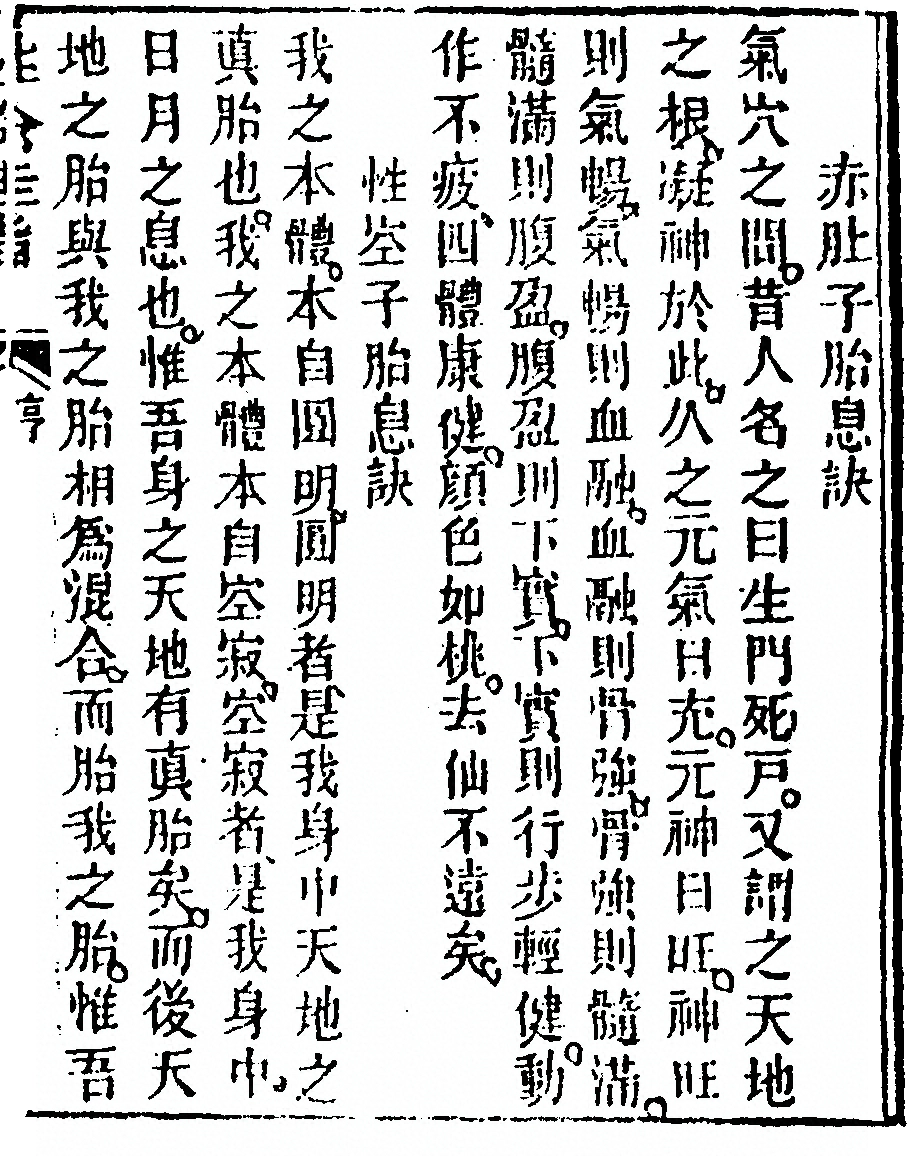 赤肚子胎息訣
氣穴之間。昔人名之曰生門死戸。又謂之天地
之根。凝神於此。久之元氣日充。元神日旺。神旺
則氣暢。氣暢則血融。血融則骨強。骨強則髓滿。
髓滿則腹盈。腹盈則下實。下實則行步輕健。動
作不疲、四體康健。顔色如桃。去仙不遠矣。
性空子胎息訣
我之本體。本自圓明。圓明者、是我身中天地之
真胎也。我之本體本自空寂。空寂者、是我身中、
日月之息也。惟吾身之天地有真胎矣。而後天
地之胎與我之胎相爲混合。而胎我之胎。惟吾
亨